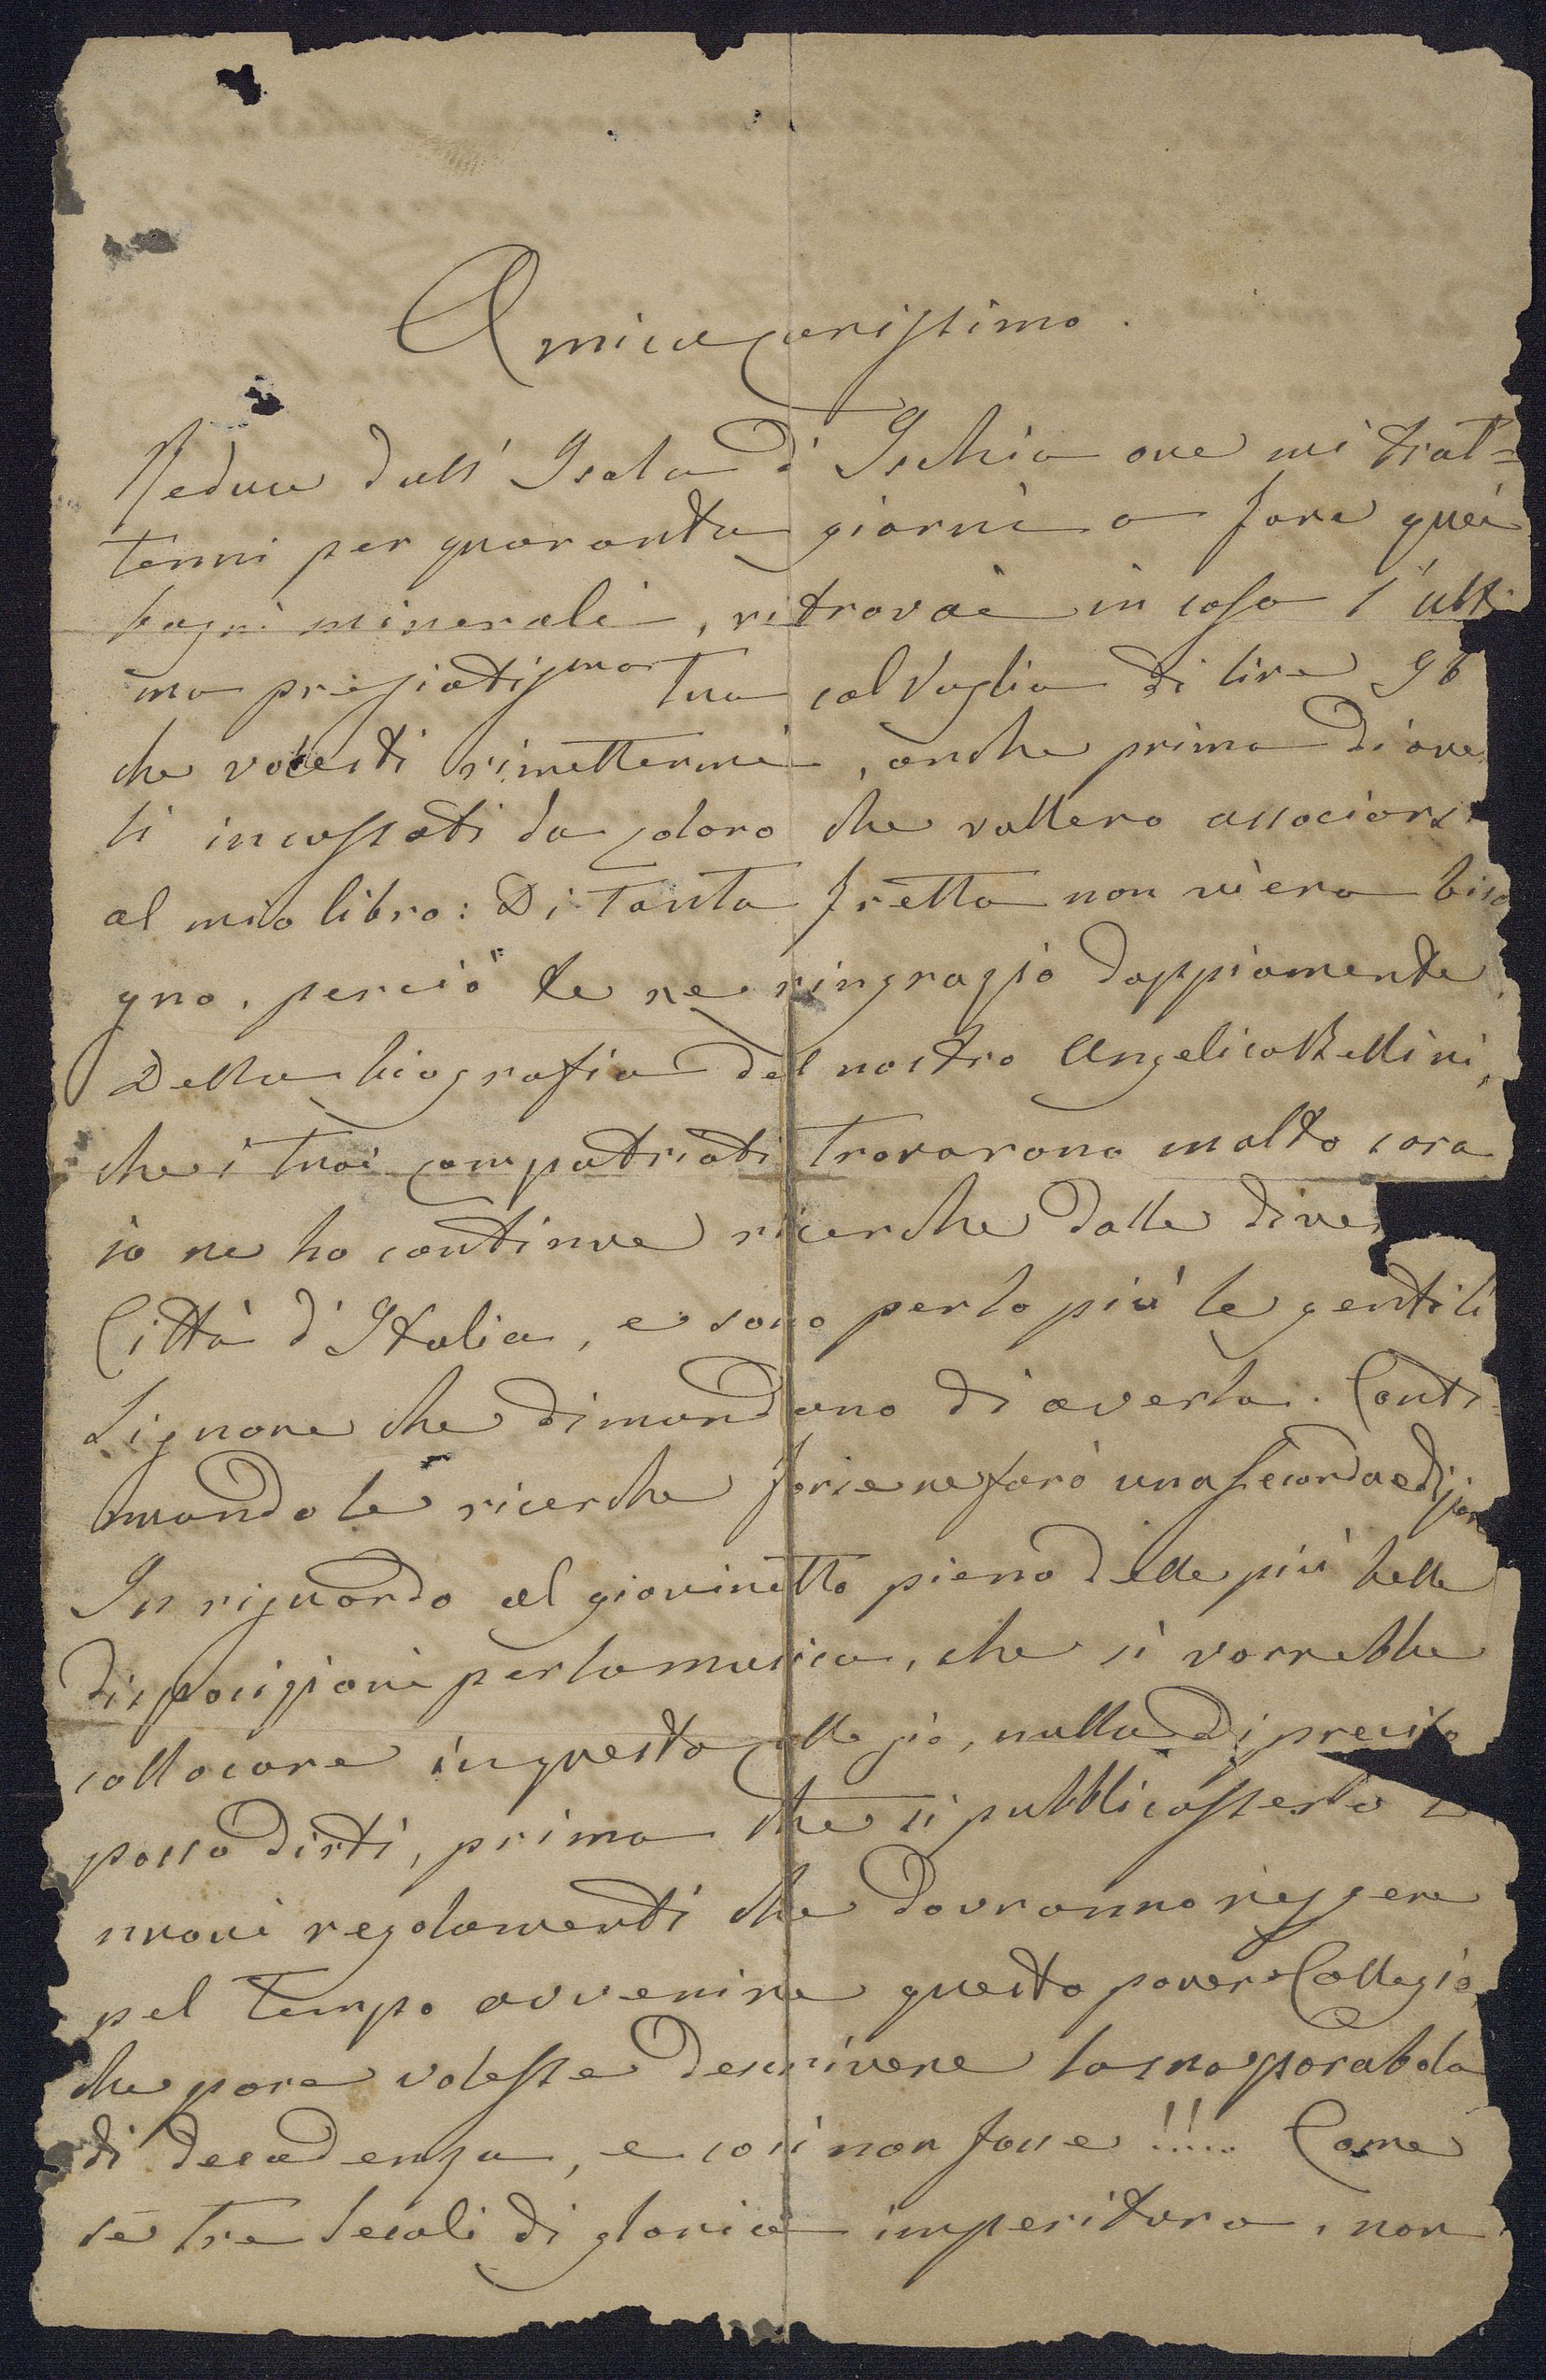 Amico carissimo.
Reduce dall' Isola d' Ischia ove mi trat=
tenni per quaranta giorni a fare quei
bagni minerali, ritrovai in casa l'ulti
ma pregiatissma tua col Vaglia di lire 96
che volesti rimettermi, anche prima di aver
li incassati da coloro che vollero associarsi
al mio libro: Di tanta fretta non v'era biso
gno, perciò te ne ringrazio doppiamente.
Della biografia del nostro Angelico Bellini,
che i tuoi compatrioti trovarono molto cara
io ne ho continue ricerche dalle dive
Città d'Italia, e sono perlopiù le gentili
Signore che dimandano di averla. Conti=
nuando le ricerche forse ne farò una seconda edizione
In riguardo al giovinetto pieno delle più belle
disposizioni per la musica, che si vorrebbe
collocare in questo Collegio, nulla di preciso
posso dirti, prima che si pubblicassero i
nuovi regolamenti che dovranno reggere
pel tempo avvenire questo povero Collegio,
che pare volesse descrivere la sua parabola
di decadenza, e così non fosse !!... Come
se tre secoli di gloria imperitura, non